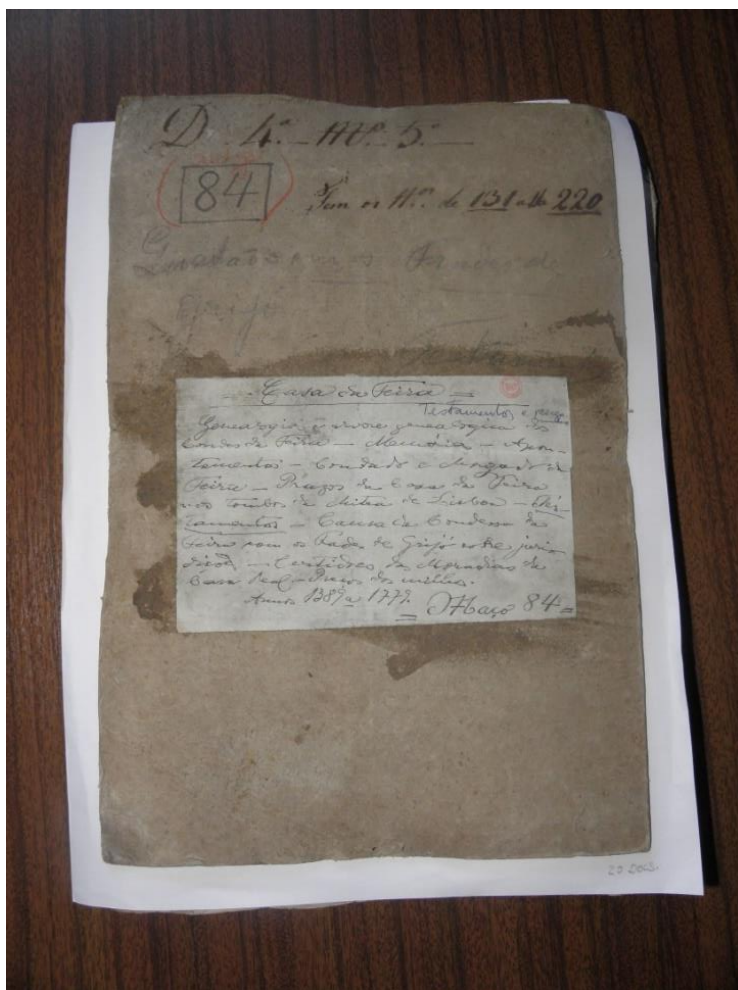 D. 4ª Mº. 5º
84
Tem os Nos. de 131 até 220
Grijó
Casa da Feira
Testamentos e
Genealogia e arvore genealogica dos
Condes da Feira — Memória — Apon-
tamentos — Condado e Morgado da
Feira — Prazos da Casa da Feira
nos tombos da Mitra de Lisboa —
tamentos — Causa da Condessa da
Feira com os Pades. de Grijó sobre juris
dição — Certidões das Moradias da
Casa Real — Preços dos milhos.
Annos 1389 a 1779. Maço 84